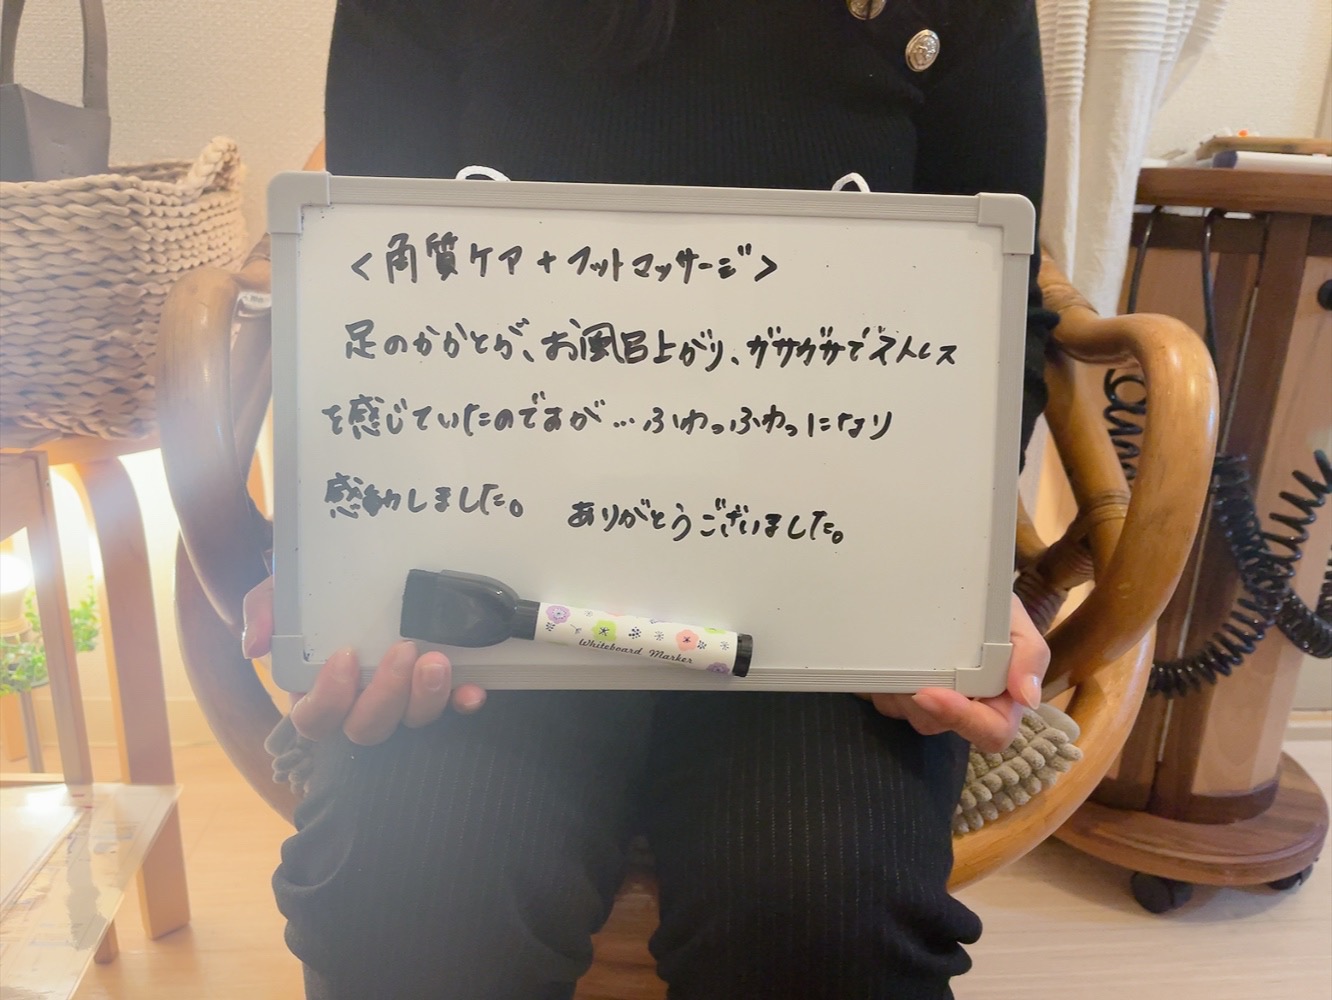 <角質ケア+フットマッサージ>
足のかかとが、お風呂上がり、ガサガサでストレス
を感じていたのですが…ふわっふわっになり
感動しました。 ありがとうございました。
Whiteboard Marker